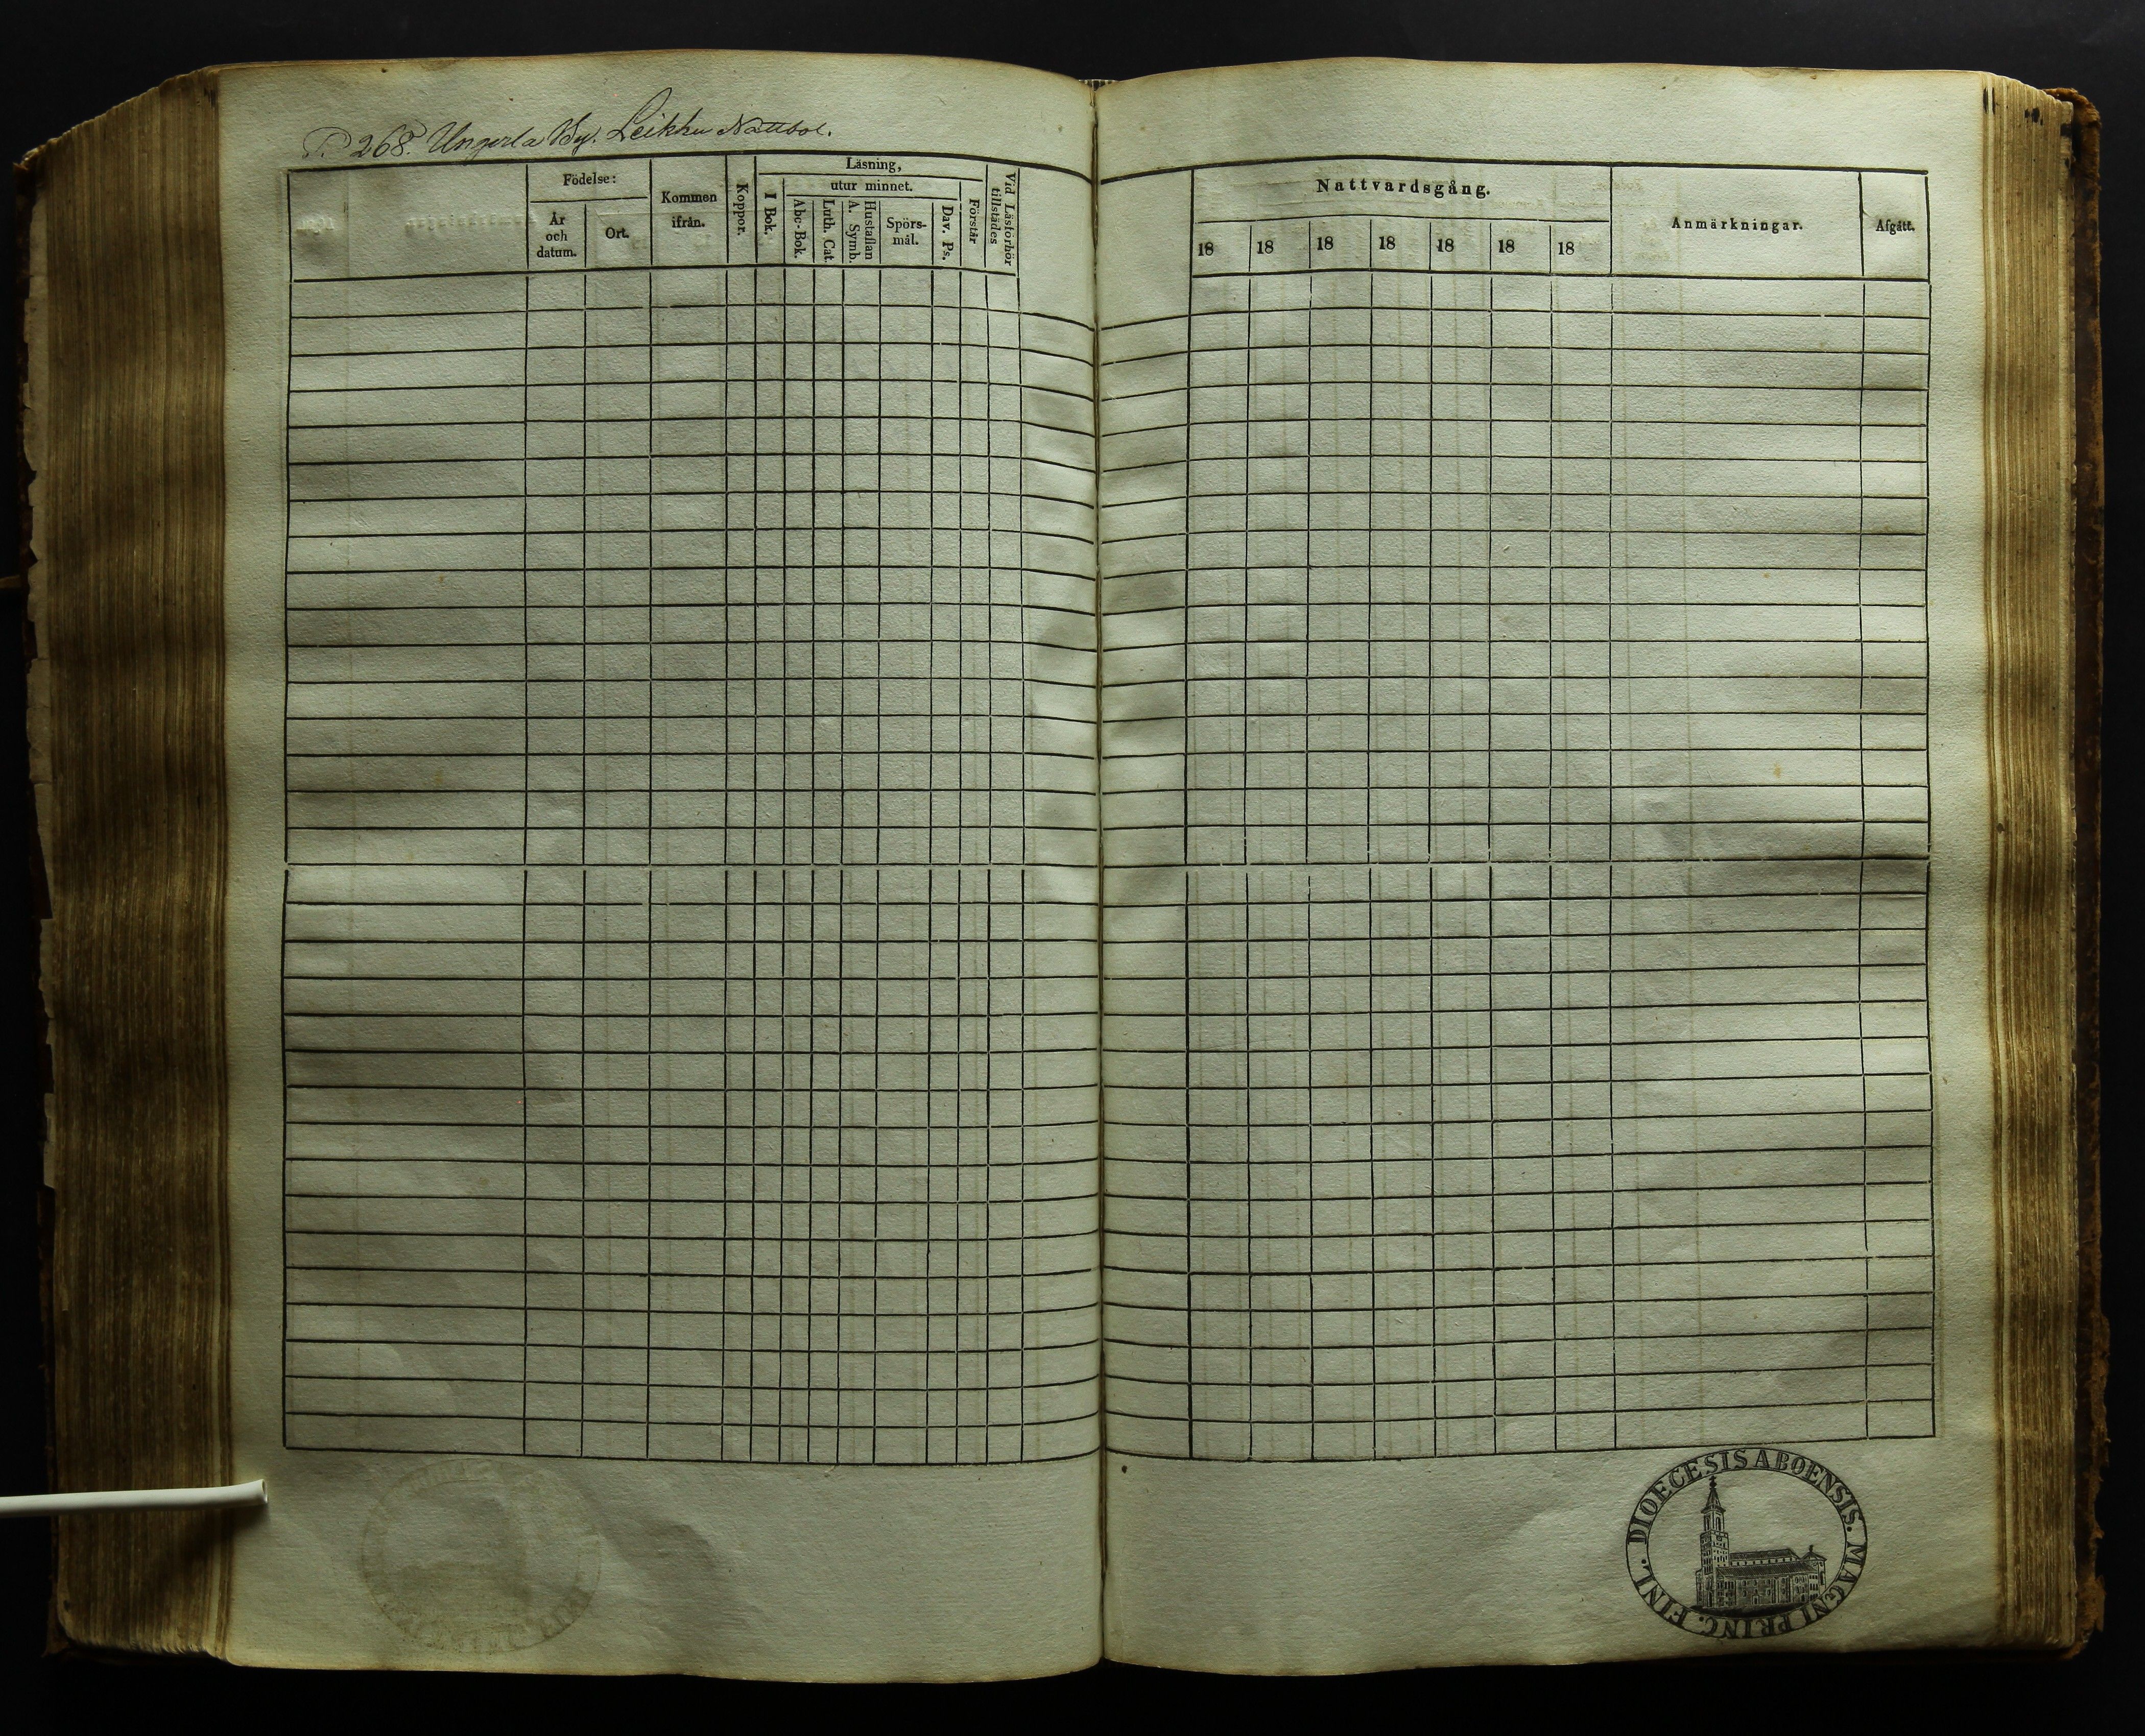 P. 268. Ungerla By. Leikku Nattbol.
Födelse:
År och datum.
Ort.
Kommen ifrån.
Koppor.
Läsning,
I Bok.
utur minnet.
Abc-Bok.
Luth. Cat.
Hustaflan A. Symb.
Spörs-mål.
Dav. Ps.
Förstår
Vid Läsförhör tillstädes
Nattvardsgång.
18 18 18 18 18 18 18
Anmärkningar.
Afgått.
DIOECESIS ABOENSIS. MAGNI PRINC. FINL.